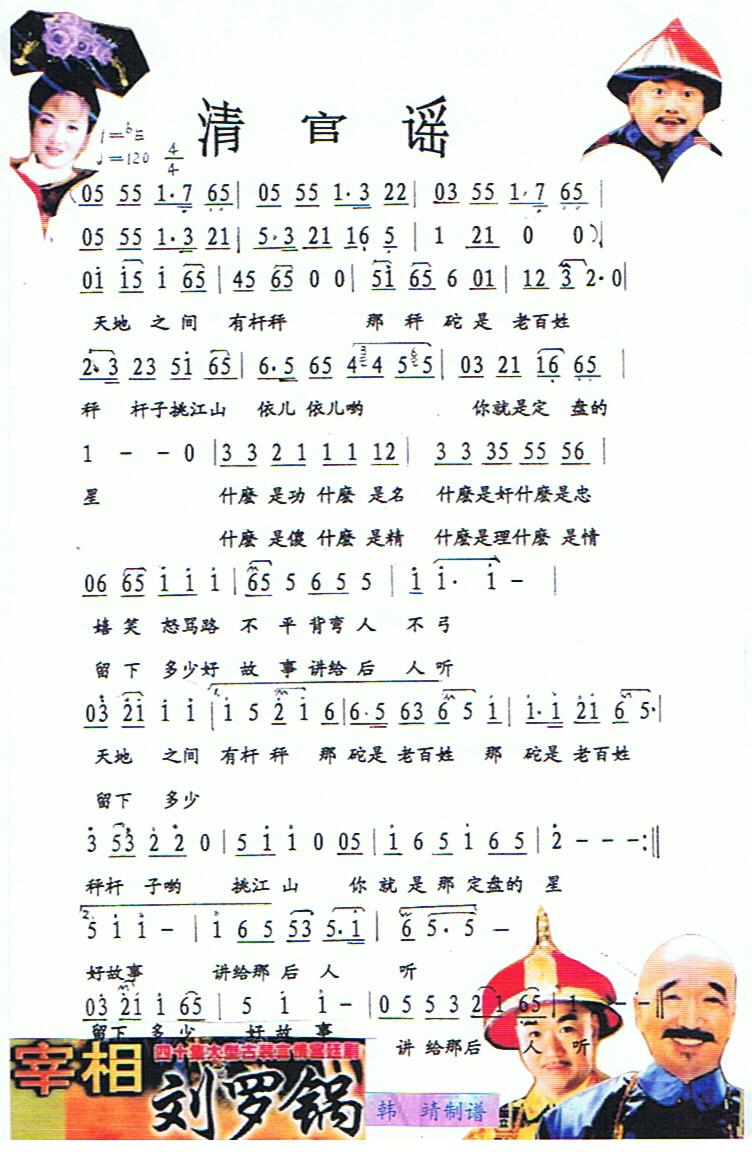 清官谣
1=♭E
♩=120 4/4
(05 55 1·7 65 | 05 55 1·3 22 | 03 55 1·7 65 |
05 55 1·3 21 | 5·3 21 16 5 | 1 21 0 0)|
01 15 1 65 | 45 65 0 0 | 51 65 6 01 | 12 3 2·0|
天地 之 间 有杆秤 那 秤 砣 是 老百姓
2·3 23 51 65 | 6·5 65 4 4 5 5 | 03 21 16 65 |
秤 杆子挑江山 依儿 依儿哟 你就是定 盘的
1 - - 0 | 3 3 2 1 1 1 12 | 3 3 35 55 56 |
星 什麽 是功 什麽 是名 什麽是奸什麽是忠
什麽 是傻 什麽 是精 什麽是理什麽 是情
06 65 1 1 1 | 65 5 6 5 5 | 1 1· 1 - |
嬉 笑 怒骂路 不 平 背弯 人 不 弓
留 下 多少好 故 事 讲给 后 人 听
03 21 1 1 |1. 1 5 2 1 6 | 6·5 63 6 5 1 | 1·1 21 6 5·|
天地 之间 有杆 秤 那 砣是 老百姓 那 砣是 老百姓
留下 多少
3 53 2 2 0 | 5 1 1 0 05 | 1 6 5 1 6 5 | 2 - - - :‖
秤杆 子哟 挑江 山 你 就 是 那 定盘的 星
2. 5 1 1 - | 1 6 5 53 5·1 | 6 5· 5 -
好故事 讲给那 后 人 听
03 21 1 65 | 5 1 1 - | 0 5 5 3 2 1 65 | 1 - - ‖
留下 多 少 好 故 事 讲 给那后 人 听
宰相
四十集大型古装言情宫廷剧
刘罗锅
韩 靖制谱